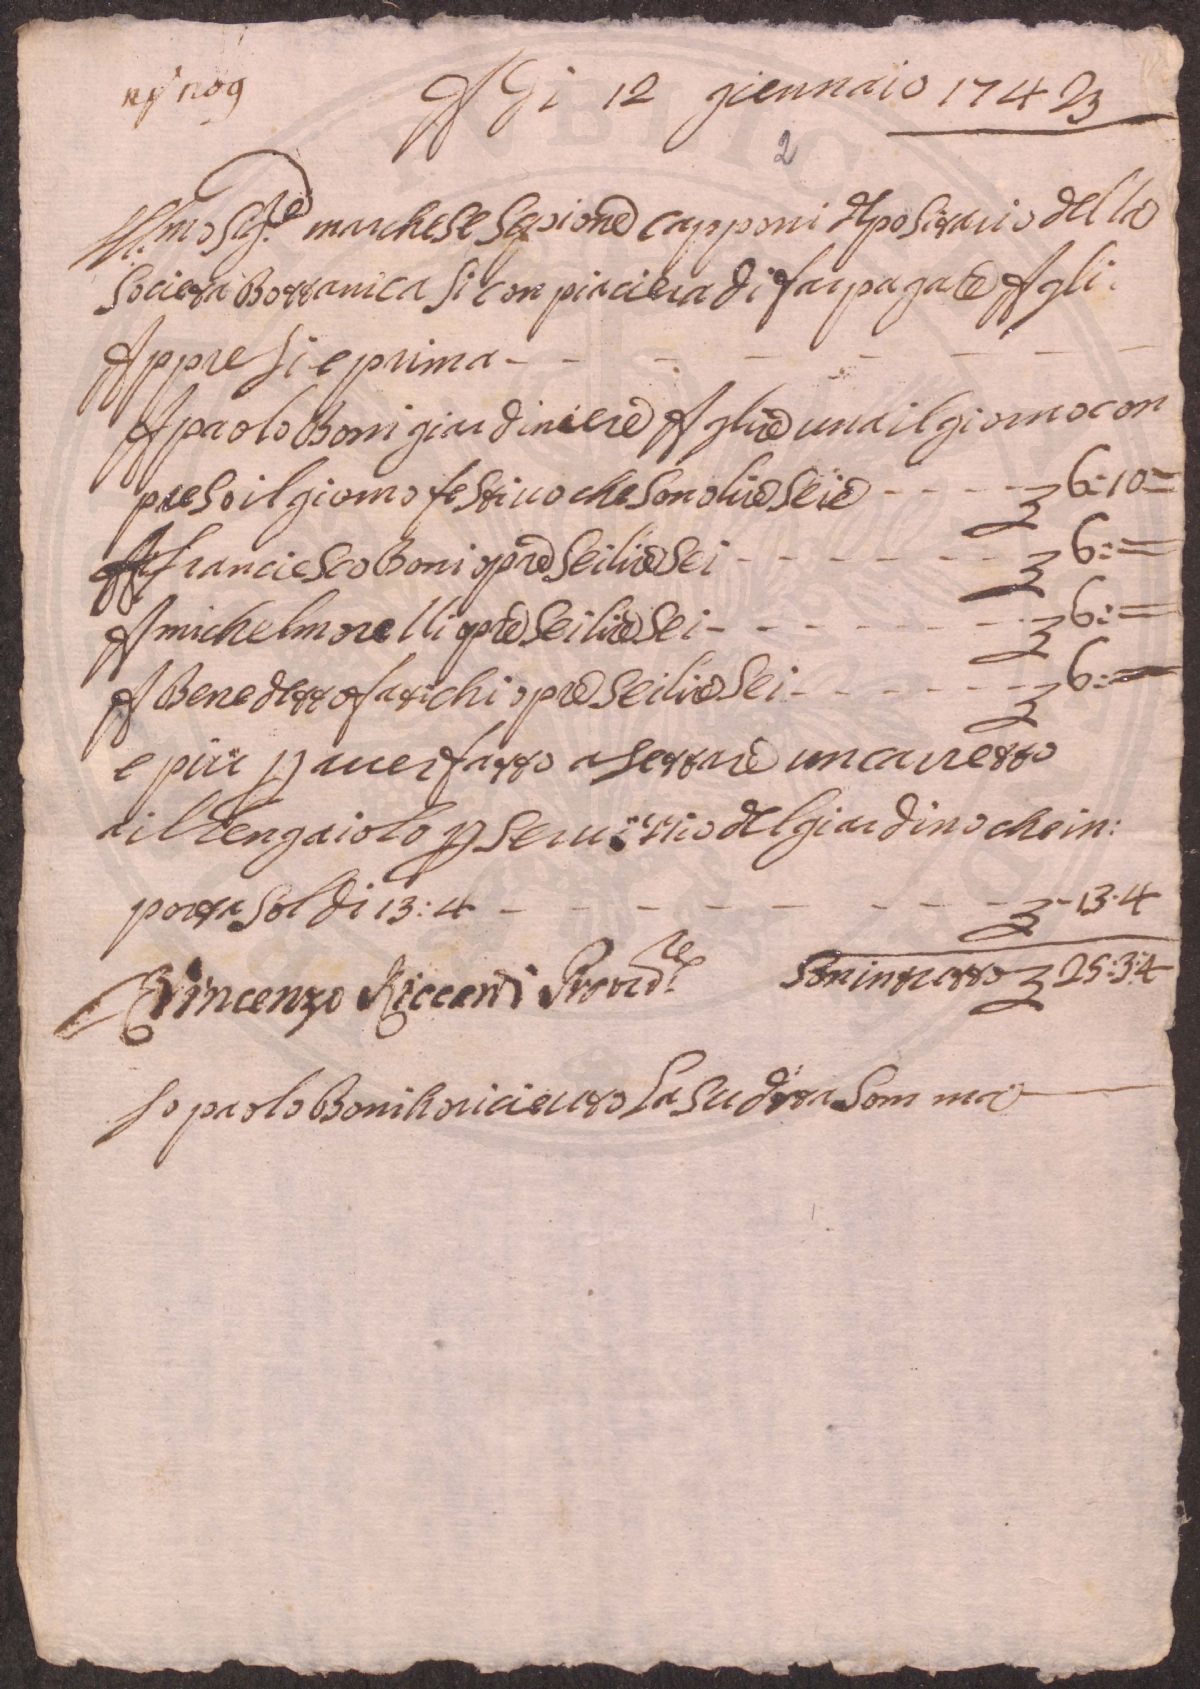 A Di 12 giennaio 1742/3
2
Ill.mo Sig.re marchese Sepione Capponi depositario della
Società Bottanica Si Conpiaciera di far pagare A gli
Appresi e prima
A paolo Boni giardiniere A glire una il giorno con
preso il giorno festiuo che sono lire Seie 6:10=
A franciesco Boni opre Sei lire Sei 6:=
A michel morelli opre Sei lire Sei 6:=
A Benedetto farichi opre Sei lire Sei 6:=
e più p auer fatto asettare un carretto
ail Zengaiolo p Seruitio del giardino che in:
porta Soldi 13:4 -13:4
Vincenzo Riccardi Proved.re Son in tutto 25:3:4
Io paolo Boni ho riceuto La Sudetta Somma